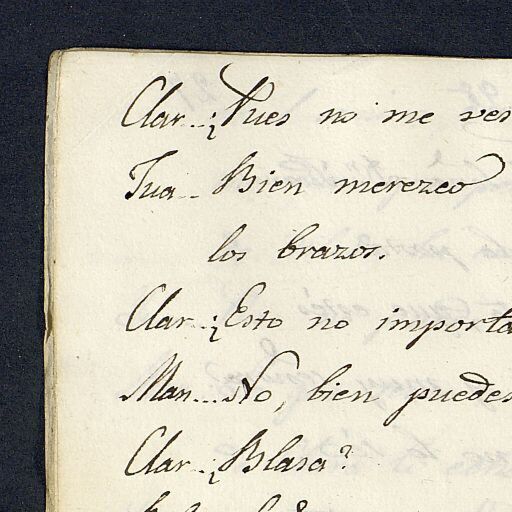 Clar..¿Pues no me ves
Jua.. Bien merezco
los brazos.
Clar..¿Esto no importa
Man...No, bien puedes
Clar..¿Blasa?